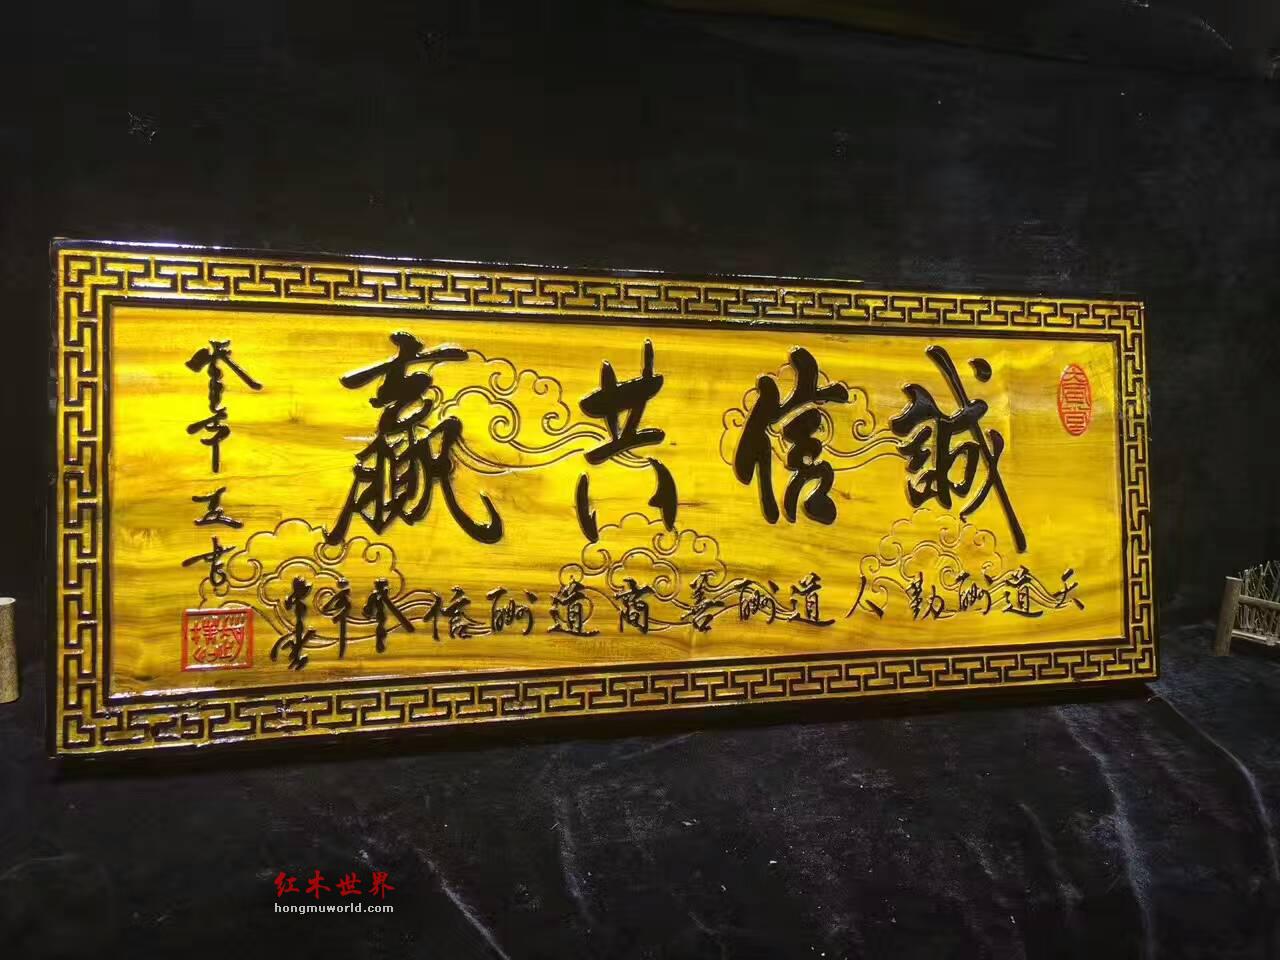 誠信共贏
天道酬勤人道酬善商道酬信癸年
癸年吉
红木世界
hongmuworld.com